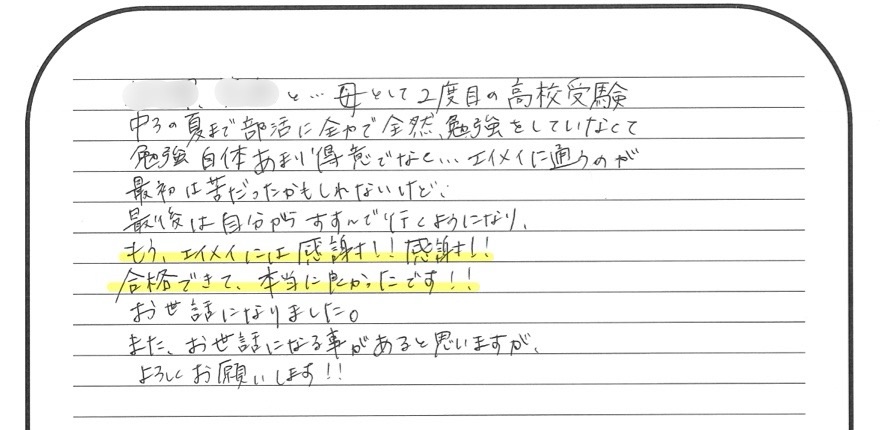 、 と… 母として2度目の高校受験
中3の夏まで部活に全力で全然、勉強をしていなくて
勉強自体あまり得意でなく… エイメイに通うのが
最初は苦だったかもしれないけど、
最後は自分からすすんで行くようになり、
もう、エイメイには感謝!! 感謝!!
合格できて、本当に良かったです!!
お世話になりました。
また、お世話になる事があると思いますが、
よろしくお願いします!!